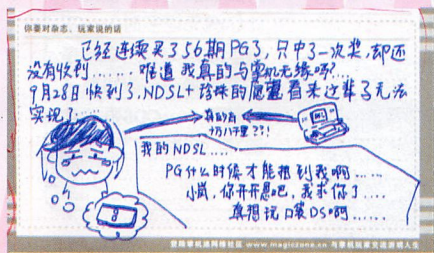 你要对杂志、玩家说的话
已经连续买了56期PG了,只中了一次奖,却还
没有收到........难道我真的与掌机无缘吗?....
9月28日快到了,NDSL+珍珠的愿望看来这辈子无法
实现了......
真的有
十万八千里??!
我的NDSL......
PG什么时候才能想到我啊......
小岗,你开开恩吧,我求你了....
真想玩口袋DS啊......
登陆掌机迷网络社区 www.magiczone.cn 与掌机玩家交流游戏人生